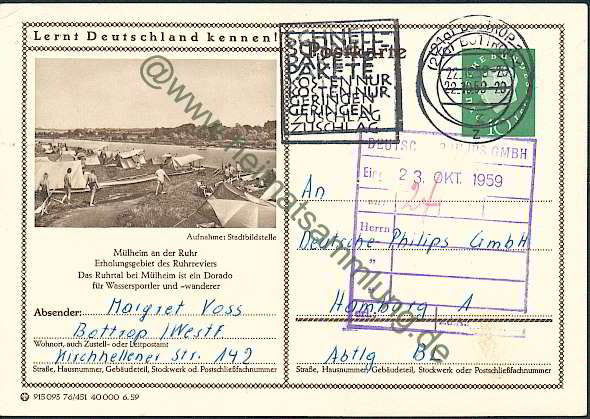 Lernt Deutschland kennen!
Postkarte
SCHNELL-
PAKETE
KOSTEN NUR
KOSTEN NUR
GERINGEN
GERINGEN
ZUSCHLAG
(21a) BOTTROP
22.10.59-20
z
10
Aufnahme: Stadtbildstelle
Mülheim an der Ruhr
Erholungsgebiet des Ruhrreviers
Das Ruhrtal bei Mülheim ist ein Dorado
für Wassersportler und -wanderer
Absender: Margret Voss
Bottrop /Westf
Wohnort, auch Zustell- oder Leitpostamt
Kirchhellener Str. 142
Straße, Hausnummer, Gebäudeteil, Stockwerk od. Postschließfachnummer
DEUTSCHE PHILIPS GMBH
Eing. 23. OKT. 1959
An
Herrn
Deutsche Philips GmbH
"
Hamburg 1
Abtlg
Straße, Hausnummer, Gebäudeteil, Stockwerk oder Postschließfachnummer
915 093 76/451 40 000 6.59
@www.heimatsammlung.de